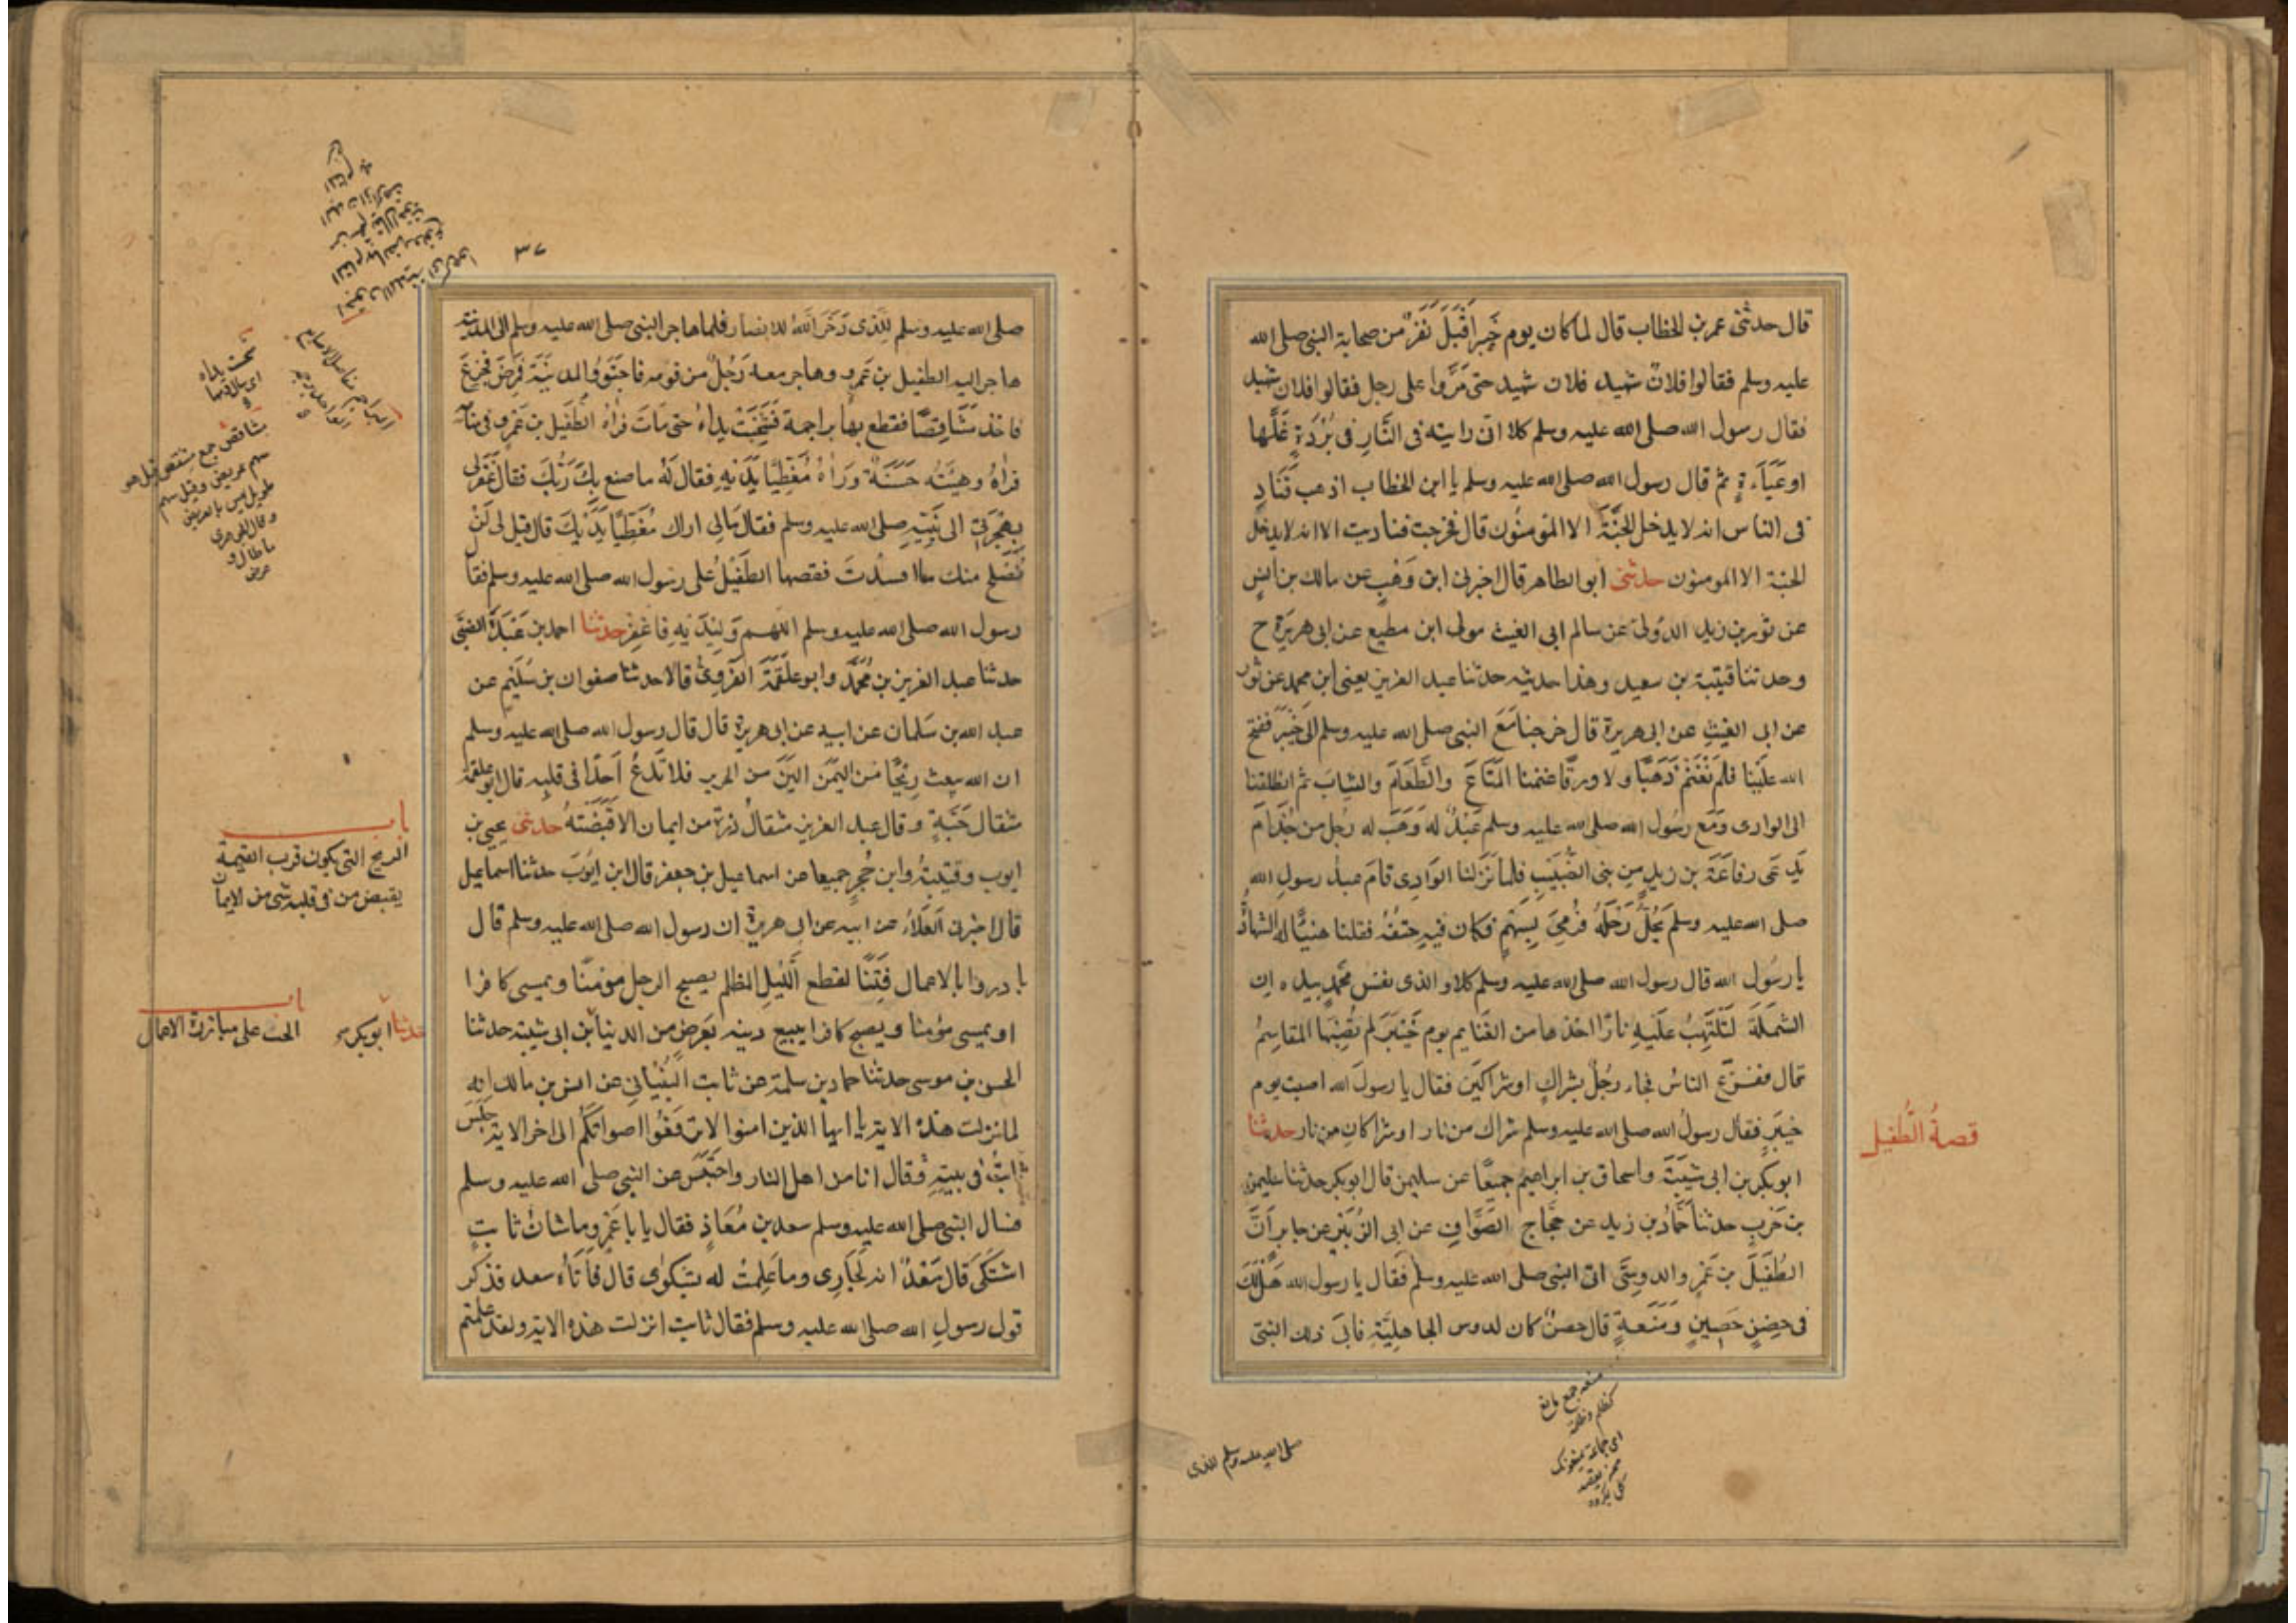 قال حدثنى عمر بن الخطاب قال لما كان يوم خيبر اقبل نفر من صحابة النبى صلى الله
عليه وسلم فقالوا فلان شهيد فلان شهيد حتى مروا على رجل فقالوا فلان شهيد
فقال رسول الله صلى الله عليه وسلم كلا انى رايته فى النار فى بردة غلها
او عباءة ثم قال رسول الله صلى الله عليه وسلم يا ابن الخطاب اذهب فناد
فى الناس انه لا يدخل الجنة الا المومنون قال فخرجت فناديت الا انه لا يدخل
الجنة الا المومنون حدثنى ابو الطاهر قال اخبرنى ابن وهب عن مالك بن انس
عن ثور بن زيد الدولى عن سالم ابى الغيث مولى ابن مطيع عن ابى هريرة ح
وحدثنا قتيبة بن سعيد وهذا حديثه حدثنا عبد العزيز يعنى ابن محمد عن ثور
عن ابى الغيث عن ابى هريرة قال خرجنا مع النبى صلى الله عليه وسلم الى خيبر ففتح
الله علينا فلم نغنم ذهبا ولا ورقا غنمنا المتاع والطعام والثياب ثم انطلقنا
الى الوادى ومع رسول الله صلى الله عليه وسلم عبد له وهبه له رجل من جذام
يدعى رفاعة بن زيد من بنى الضبيب فلما نزلنا الوادى قام عبد رسول الله
صلى الله عليه وسلم يحل رحله فرمى بسهم فكان فيه حتفه فقلنا هنيا له الشهادة
يا رسول الله قال رسول الله صلى الله عليه وسلم كلا والذى نفس محمد بيده ان
الشملة لتلتهب عليه نارا اخذها من الغنايم يوم خيبر لم تصبها المقاسم
قال ففزع الناس فجاء رجل بشراك او شراكين فقال يا رسول الله اصبت يوم
خيبر فقال رسول الله صلى الله عليه وسلم شراك من نار او شراكان من نار حدثنا
ابو بكر بن ابى شيبة واسحاق بن ابراهيم جميعا عن سليمن قال ابو بكر حدثنا سليمن
بن حرب حدثنا حماد بن زيد عن حجاج الصواف عن ابى الزبير عن جابر ان
الطفيل بن عمرو الدوسى اتى النبى صلى الله عليه وسلم فقال يا رسول الله هل لك
فى حصن حصين ومنعة قال حصن كان لدوس الجاهلية فابى ذلك النبى
قصة الطفيل
منعة جمع مانع
كظلم وظلمة
اى جماعة يمنعونك
صلى الله عليه وسلم للذى
٣٧
صلى الله عليه وسلم للذى ذخر الله للانصار فلما هاجر النبى صلى الله عليه وسلم الى المدينة
هاجر اليه الطفيل بن عمرو وهاجر معه رجل من قومه فاجتووا المدينة فمرض فجزع
فاخذ مشاقصا فقطع بها براجمه فشخبت يداه حتى مات فراه الطفيل بن عمرو فى منامه
فراه وهيئته حسنة وراه مغطيا يديه فقال له ما صنع بك ربك فقال غفر لى
بهجرتى الى نبيه صلى الله عليه وسلم فقال مالى اراك مغطيا يديك قال قيل لى لن
نصلح منك ما افسدت فقصها الطفيل على رسول الله صلى الله عليه وسلم فقال
رسول الله صلى الله عليه وسلم اللهم وليديه فاغفر حدثنا احمد بن عبدة الضبى
حدثنا عبد العزيز بن محمد وابو علقمة الفروى قالا حدثنا صفوان بن سليم عن
عبد الله بن سلمان عن ابيه عن ابى هريرة قال قال رسول الله صلى الله عليه وسلم
ان الله يبعث ريحا من اليمن الين من الحرير فلا تدع احدا فى قلبه قال ابو علقمة
مثقال حبة وقال عبد العزيز مثقال ذرة من ايمان الا قبضته حدثنى يحيى بن
ايوب وقتيبة وابن حجر جميعا عن اسماعيل بن جعفر قال ابن ايوب حدثنا اسماعيل
قال اخبرنى العلاء عن ابيه عن ابى هريرة ان رسول الله صلى الله عليه وسلم قال
بادروا بالاعمال فتنا لقطع الليل المظلم يصبح الرجل مومنا ويمسى كافرا
او يمسى مؤمنا ويصبح كافرا يبيع دينه بعرض من الدنيا بن ابى شيبة حدثنا
الحسن بن موسى حدثنا حماد بن سلمة عن ثابت البنانى عن انس بن مالك انه
لما نزلت هذه الاية يا ايها الذين امنوا لا ترفعوا اصواتكم الى اخر الاية جلس
ثابت فى بيته وقال انا من اهل النار واحتبس عن النبى صلى الله عليه وسلم
فسال النبى صلى الله عليه وسلم سعد بن معاذ فقال يا با عمرو ما شان ثابت
اشتكى قال سعد انه لجارى وما علمت له بشكوى قال فاتاه سعد فذكر
قول رسول الله صلى الله عليه وسلم فقال ثابت انزلت هذه الاية ولقد علمتم
شخبت يداه
اى سال دمها
مشاقص جمع مشقص قيل هو
سهم عريض وقيل سهم
طويل ليس بالعريض
وقال الجوهرى
ما طال و
عرض
باب
الريح التى يكون قرب القيمة
يقبض من فى قلبه شى من الايمان
باب
الحث على مبادرة الاعمال
حدثنا ابو بكر